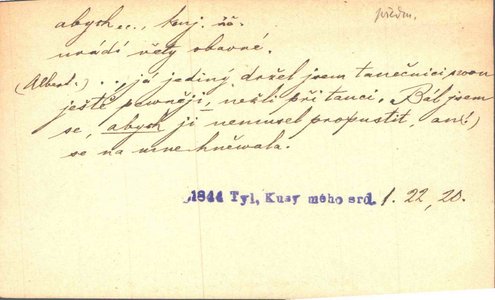 abych ..., konj. žá. předm.
uvádí věty obavné.
(Albert:) ... já jediný držel jsem tanečnici svou
ještě pevněji, nežli při tanci. Bál jsem
se, abych ji nemusel propustit, an(:)
se na mne hněwala.
1844 Tyl, Kusy mého srd. 1. 22, 20.